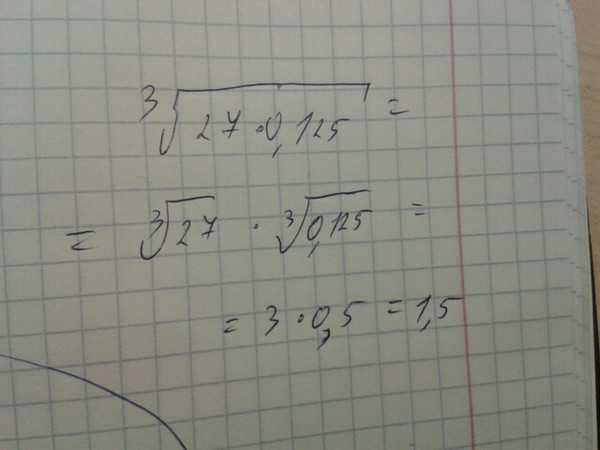 ∛(27·0,125) =
= ∛27 · ∛0,125 =
= 3·0,5 = 1,5